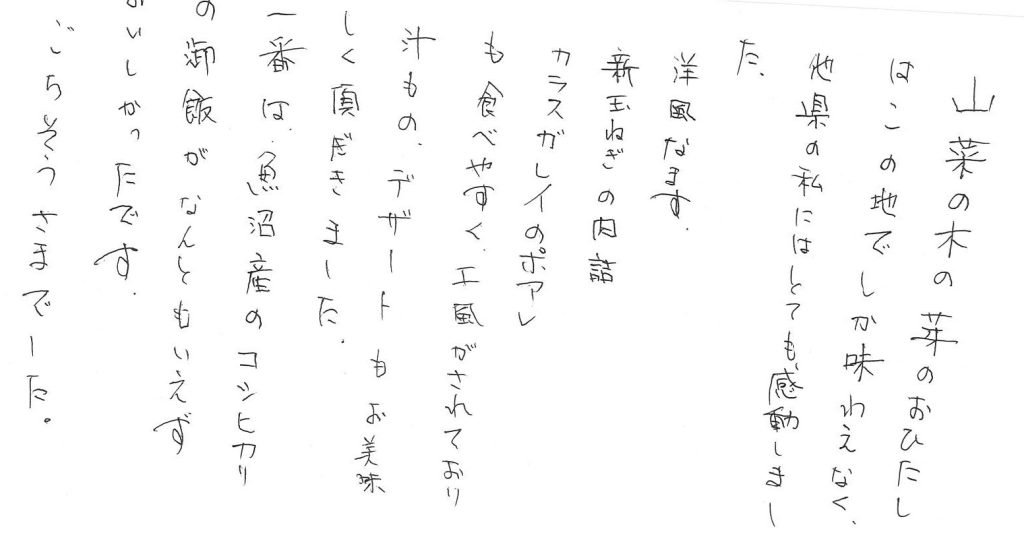 山菜の木の芽のおひたし
はこの地でしか味わえなく、
他県の私にはとても、感動しまし
た、
洋風なます、
新玉ねぎの肉詰
カラスガレイのポアレ
も食べやすく、工風がされており
汁もの、デザートもお美味
しく頂ぎきました。
一番は、魚沼産のコシヒカリ
の御飯がなんともいえず
おいしかったです。
ごちそうさまでした。